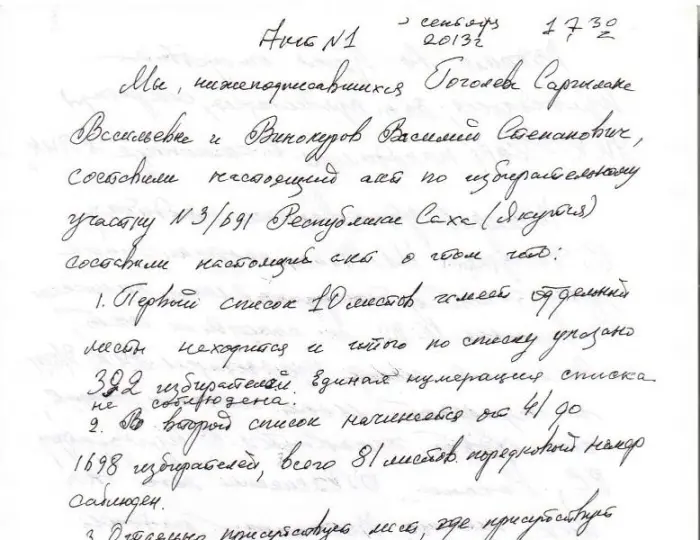 сентябрь 17 30
Акт N1 2013г
Мы, нижеподписавшихся Гоголева Саргылана
Васильевна и Винокуров Василий Степанович,
составили настоящий акт по избирательному
участку N3/691 Республики Саха (Якутия)
составили настоящий акт о том что:
1. Первый список 10 листов имеет отдельный
листы находится и итого по списку указано
392 избирателей. Единая нумерация списка
не соблюдена.
2. Во второй список начинается от 41 до
1698 избирателей, всего 81 листов порядковый номер
соблюден.
3. Отдельно присутствует лист, где присутствует